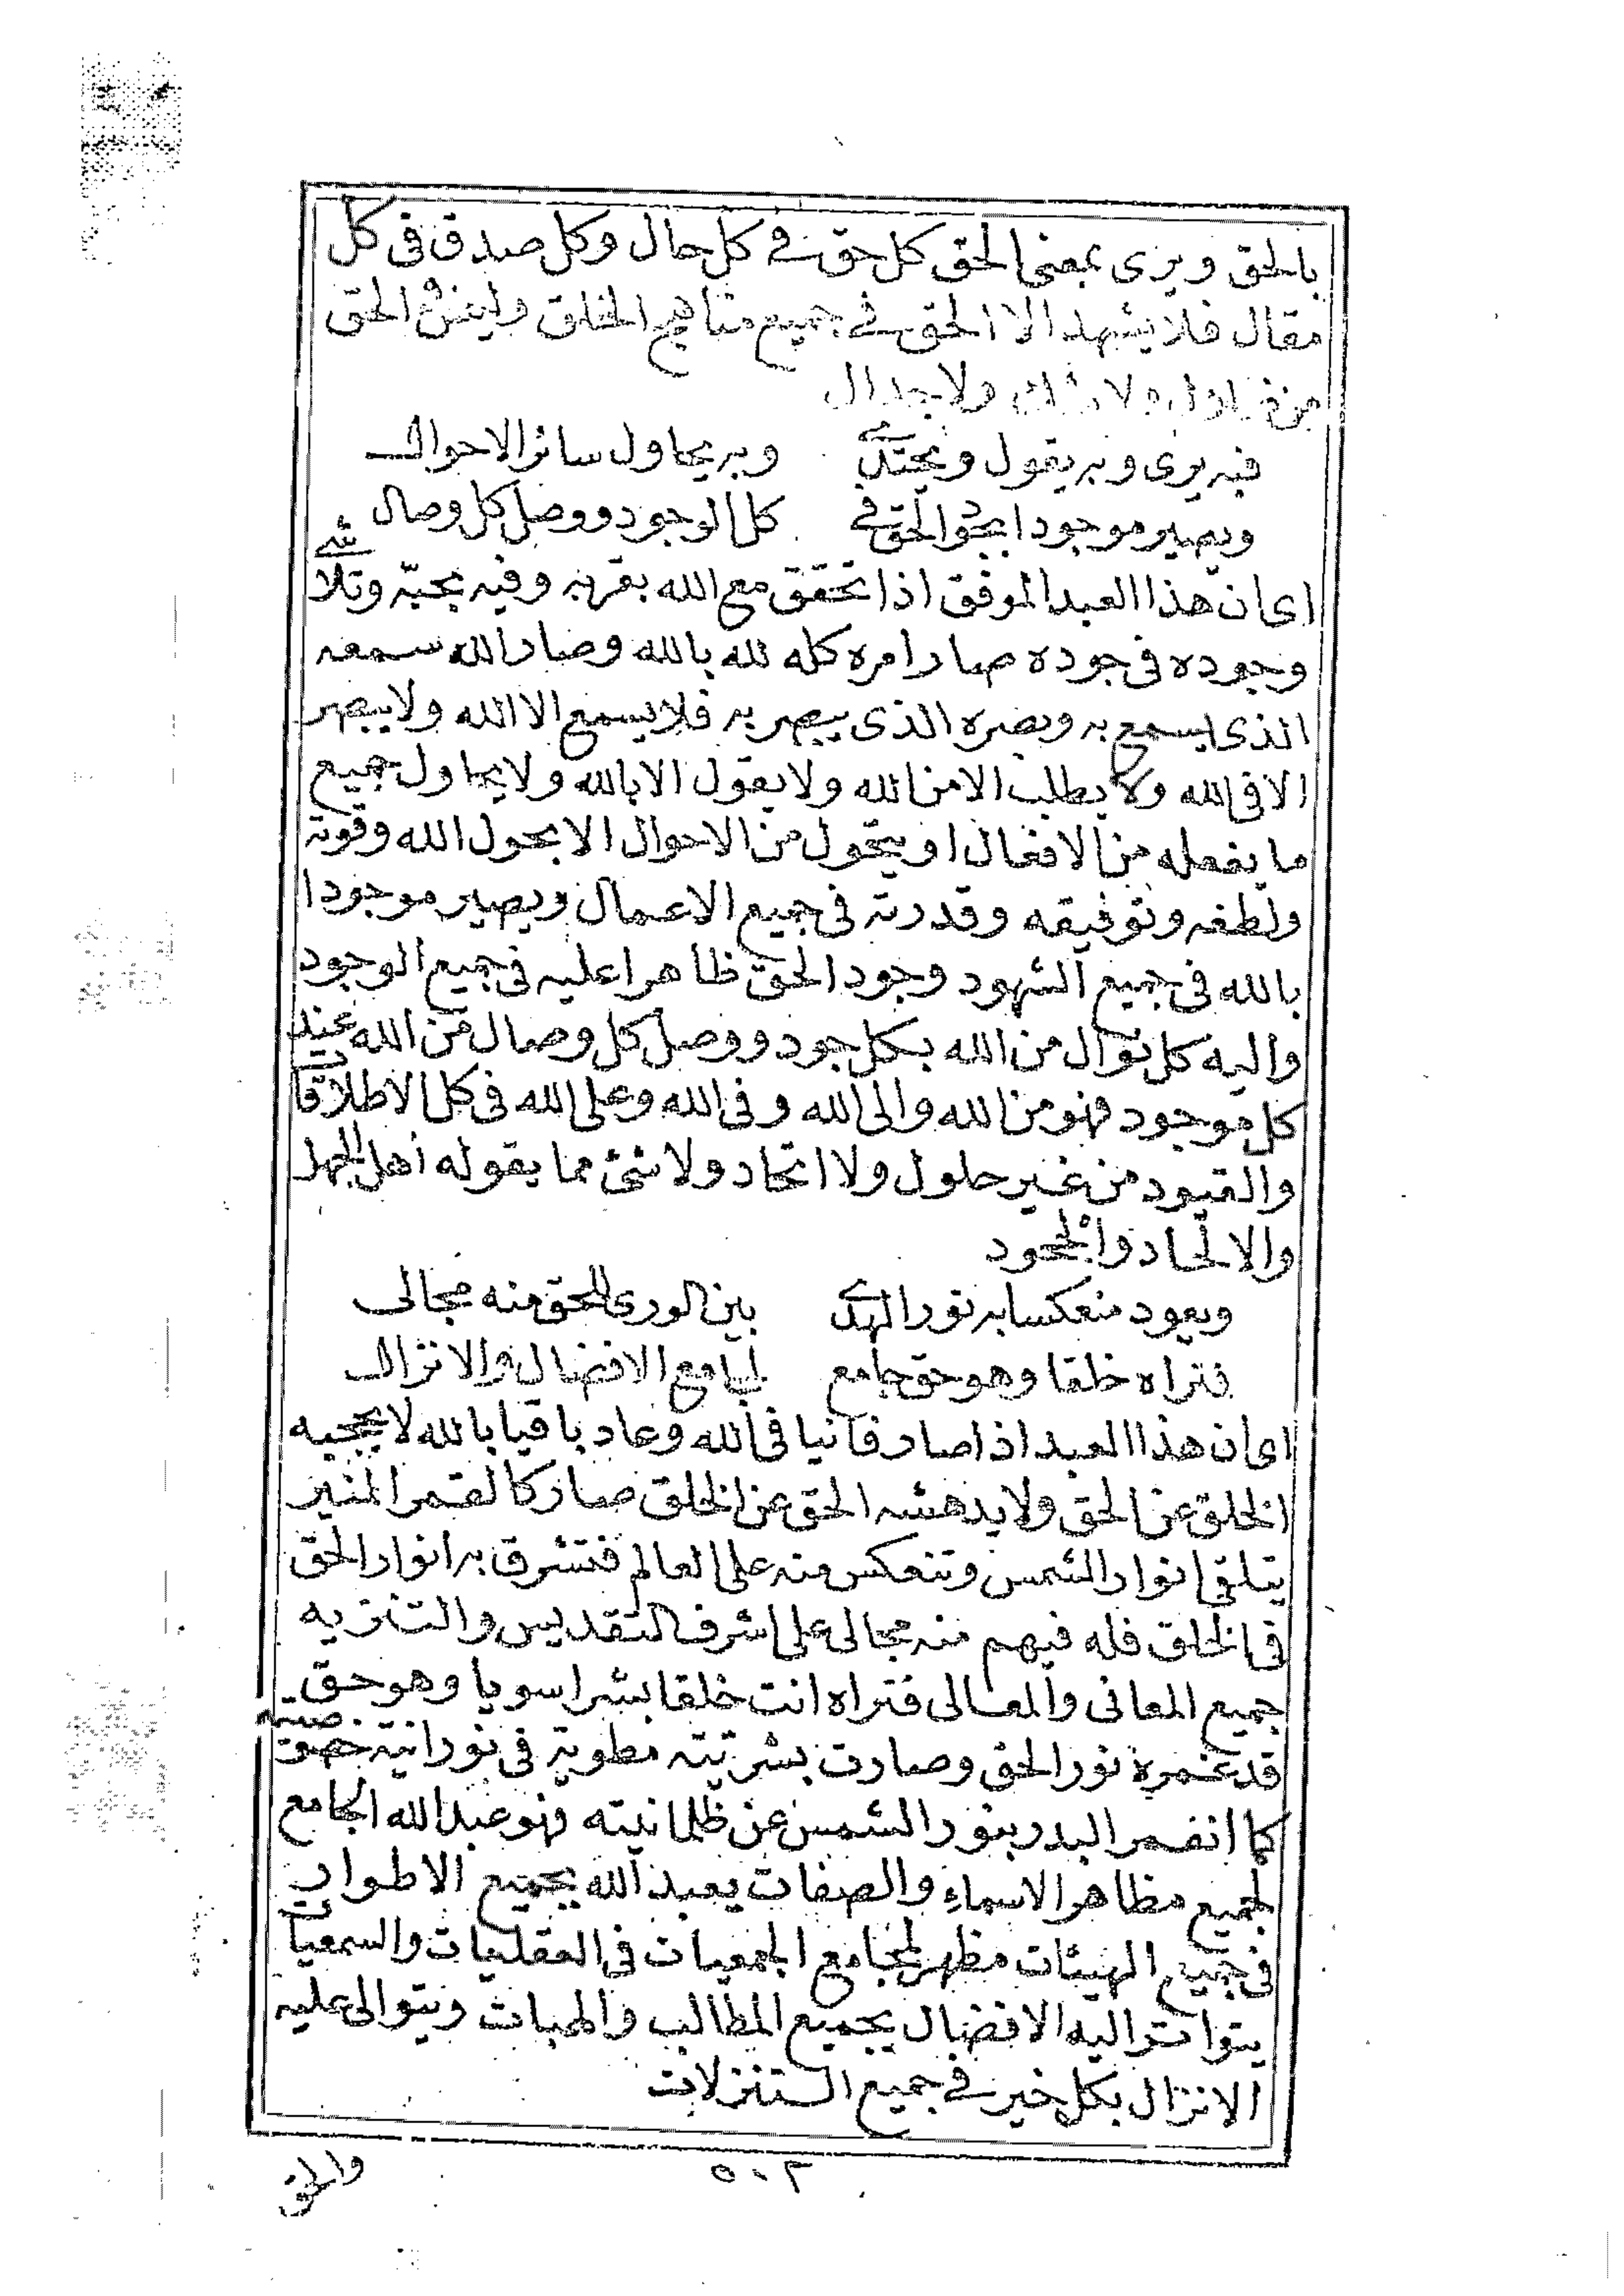 بالحق ويرى بمعنى الحق كل حق في كل حال وكل صدق في كل
مقال فلا يشهد الا الحق في جميع مناهج الخلق وليس الحق
ولا شك ولا جدال
فبه يرى وبه يقول ويجتدى وبه يحاول سائر الاحوال
ويصير موجودا بجود الحق في كل الوجود ووصل كل وصال
اى ان هذا العبد الموفق اذا تحقق مع الله بقربه وفيه بحبه وتلاشى
وجوده فى جوده صار امره كله لله بالله وصار الله سمعه
الذى يسمع به وبصره الذى يبصر به فلا يسمع الا الله ولا يبصر
الا فى الله ولا يطلب الا من الله ولا يقول الا بالله ولا يحاول جميع
ما يفعله من الافعال او يتحول من الاحوال الا بحول الله وقوته
ولطفه وتوفيقه وقدرته فى جميع الاعمال ويصير موجودا
بالله فى جميع الشهود وجود الحق ظاهرا عليه فى جميع الوجود
واليه كل نوال من الله بكل جود ووصل كل وصال من الله عند
كل موجود فهو من الله والى الله وفى الله وعلى الله فى كل الاطلاقات
والقيود من غير حلول ولا اتحاد ولا شئ مما يقوله أهل الجهل
والالحاد والجحود
ويعود منعكسا به نور الهدى بين الورى للحق منه مجالى
فتراه خلقا وهو حق جامع لجامع الافضال والانزال
اى ان هذا العبد اذا صار فانيا فى الله وعاد باقيا بالله لا يحجبه
الخلق عن الحق ولا يدهشه الحق عن الخلق صار كالقمر المنير
يتلقى انوار الشمس وتنعكس منه على العالم فتشرق به انوار الحق
فى الخلق فله فيهم منه مجالى على اشرف التقديس والتنزيه
جميع المعانى والمعالى فتراه انت خلقا بشرا سويا وهو حق
قد غمره نور الحق وصارت بشريته مطوية فى نورانية خصوصيته
كما انغمر البدر بنور الشمس عن ظلمانيته فهو عبد الله الجامع
لجميع مظاهر الاسماء والصفات يعبد الله بجميع الاطوار
فى جميع الهيئات مظهر لمجامع الجمعيات فى العقليات والسمعيات
يتواتر اليه الافضال بجميع المطالب والهبات ويتوالى عليه
الانزال بكل خير في جميع التنزلات
والحق
٥٠٢